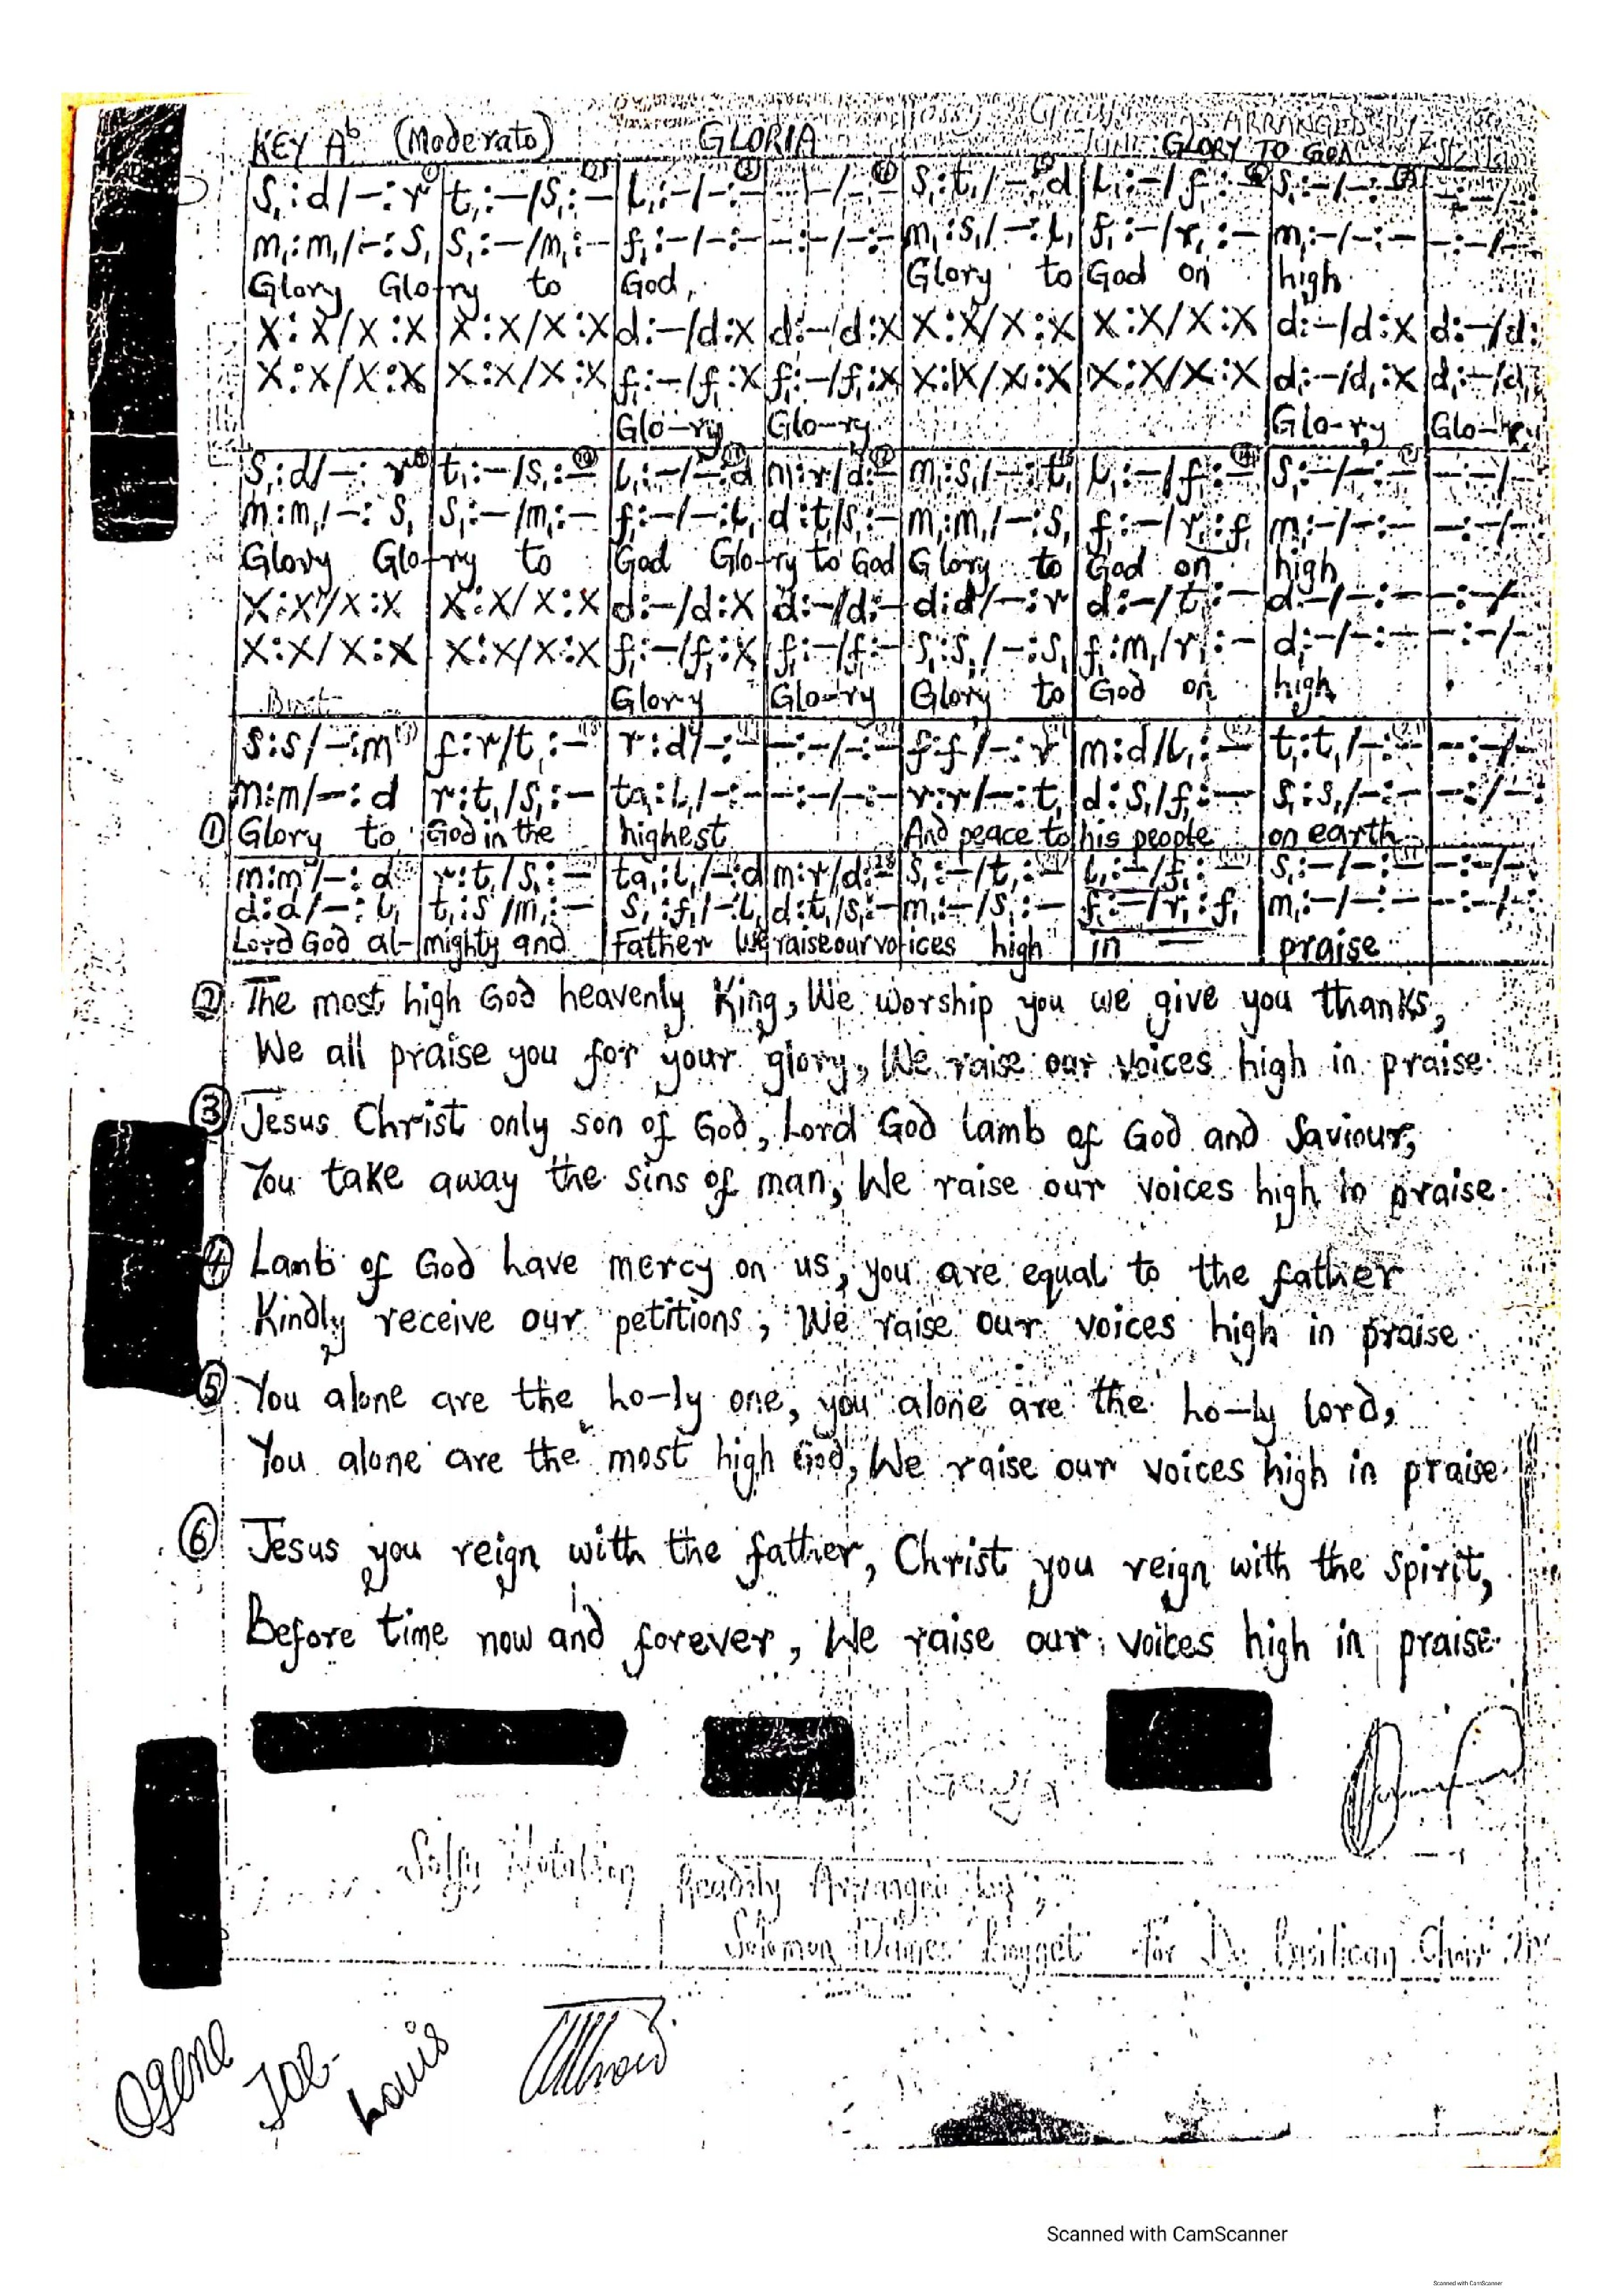 KEY Ab (Moderato) GLORIA AS ARRANGED BY
GLORY TO GOD
S₁:d/–:r t₁:–/S₁:– L₁:–/–:– –:–/–:– S₁:t₁/–:d L₁:–/f₁:– S₁:–/–:– –:–/–:
m₁:m₁/–:S₁ S₁:–/m₁:– f₁:–/–:– –:–/–:– m₁:S₁/–:L₁ f₁:–/r₁:– m₁:–/–:– –:–/–
Glory Glo-ry to God, Glory to God on high
X:X/X:X X:X/X:X d:–/d:X d:–/d:X X:X/X:X X:X/X:X d:–/d:X d:–/d:
X:X/X:X X:X/X:X f₁:–/f₁:X f₁:–/f₁:X X:X/X:X X:X/X:X d₁:–/d₁:X d₁:–/d₁
Glo-ry Glo-ry Glo-ry Glo-ry
S₁:d/–:r t₁:–/S₁:– L₁:–/–:d m:r/d:– m₁:S₁/–:t₁ L₁:–/f₁:– S₁:–/–:– –:–/–
m₁:m₁/–:S₁ S₁:–/m₁:– f₁:–/–:L₁ d:t₁/S₁:– m₁:m₁/–:S₁ f₁:–/r₁:f₁ m₁:–/–:– –:–/–
Glory Glo-ry to God Glo-ry to God Glory to God on high
X:X/X:X X:X/X:X d:–/d:X d:–/d:– d:d/–:r d:–/t₁:– d:–/–:– –:–/–
X:X/X:X X:X/X:X f₁:–/f₁:X f₁:–/f₁:– S₁:S₁/–:S₁ f₁:m₁/r₁:– d₁:–/–:– –:–/–
Glory Glo-ry Glory to God on high
S:S/–:m f:r/t₁:– r:d/–:– –:–/–:– f:f/–:r m:d/L₁:– t₁:t₁/–:– –:–/–
m:m/–:d r:t₁/S₁:– ta₁:L₁/–:– –:–/–:– r:r/–:t₁ d:S₁/f₁:– S₁:S₁/–:– –:–/–
① Glory to God in the highest And peace to his people on earth
m:m/–:d r:t₁/S₁:– ta₁:L₁/–:d m:r/d:– S₁:–/t₁:– L₁:–/f₁:– S₁:–/–:– –:–/–
d:d/–:L₁ t₁:S/m₁:– S₁:f₁/–:L₁ d:t₁/S₁:– m₁:–/S₁:– f₁:–/r₁:f₁ m₁:–/–:– –:–/–
Lord God al-mighty and Father We raise our voices high in — praise
② The most high God heavenly King, We worship you we give you thanks,
We all praise you for your glory, We raise our voices high in praise.
③ Jesus Christ only son of God, Lord God lamb of God and Saviour,
You take away the sins of man, We raise our voices high in praise.
④ Lamb of God have mercy on us, you are equal to the father
Kindly receive our petitions, We raise our voices high in praise.
⑤ You alone are the ho-ly one, you alone are the ho-ly lord,
You alone are the most high God, We raise our voices high in praise.
⑥ Jesus you reign with the father, Christ you reign with the spirit,
Before time now and forever, We raise our voices high in praise.
Solfa Notation Readily Arranged by;
Solomon For De Basilican Choir
Ogene
Joe-
Louis
Scanned with CamScanner
Scanned with CamScanner